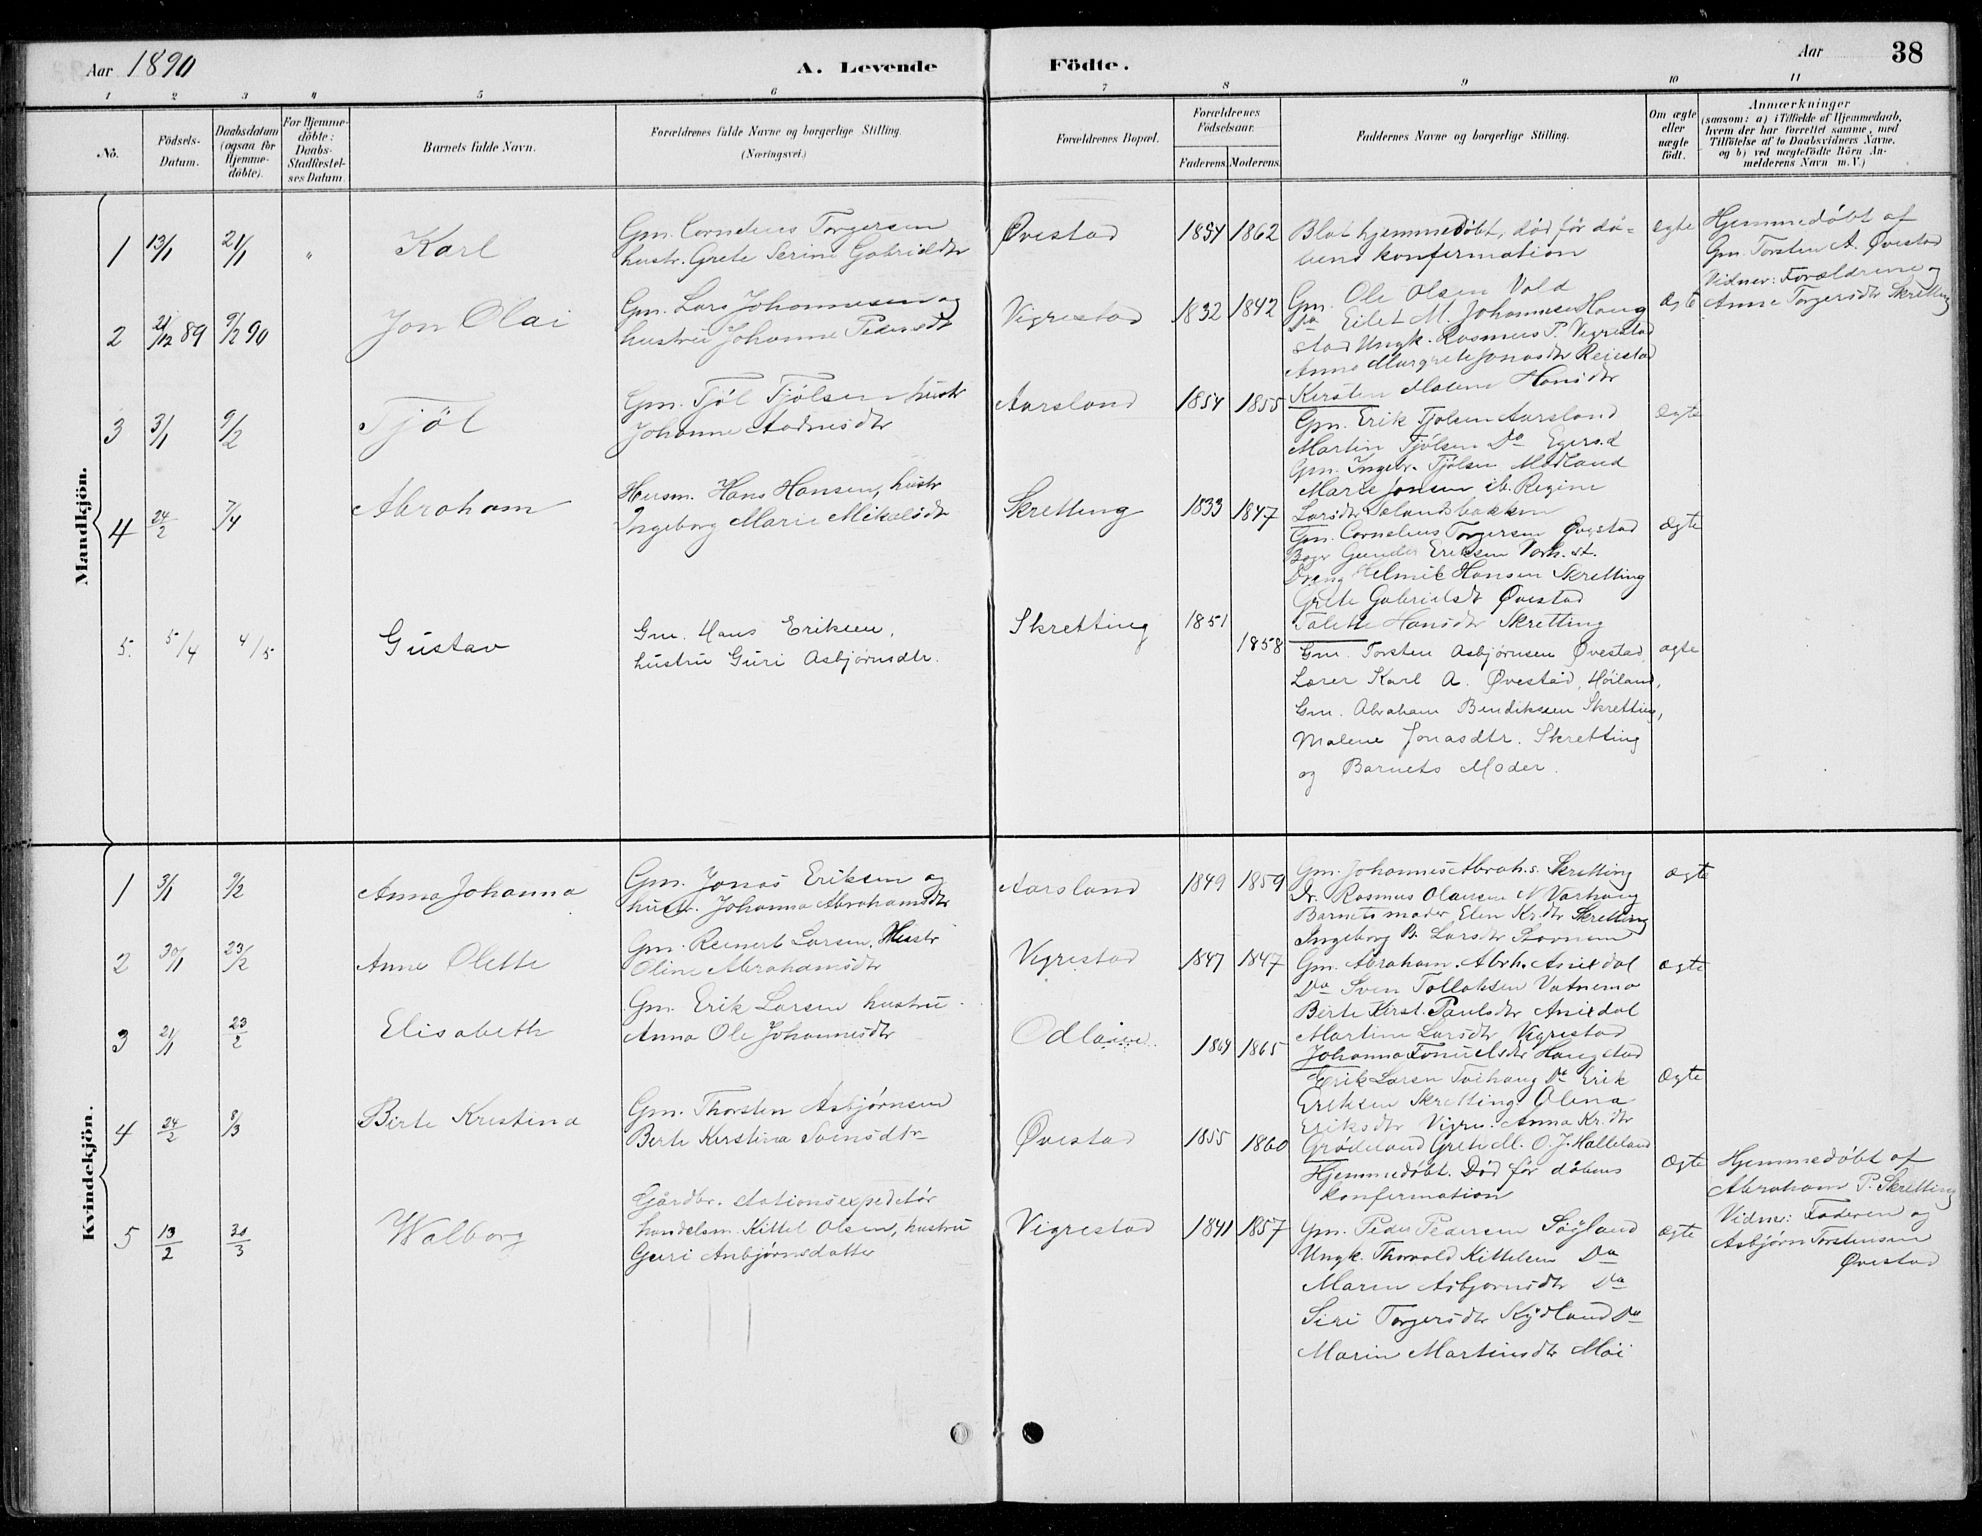 Aar 1890
A. Levende Födte.
Aar 38
1 2 3 4 5 6 7 8 9 10 11
No.
Födsels-Datum.
Daabsdatum (ogsaa for Hjemme-döbte).
For Hjemme-döbte: Daabs-Stadfæstel-ses Datum.
Barnets fulde Navn.
Forældrenes fulde Navne og borgerlige Stilling.
(Næringsvei.)
Forældrenes Bopæl.
Forældrenes Födselsaar.
Faderens. Moderens.
Faddernes Navne og borgerlige Stilling.
Om ægte eller uægte födt.
Anmærkninger
(saasom: a) i Tilfælde af Hjemmedaab, hvem der har forrettet samme, med Tilföielse af to Daabsvidners Navne, og b) ved uægtefödte Börn An-melderens Navn m. V.)
Mandkjön.
1 13/1 21/1 " Karl
Gm. Cornelius Torgersen
hustr. Grete Serine Gabrielsdtr
Øvestad 1854 1862
Blot hjemmedöbt, död för då-
bens konfirmation
ægte
Hjemmedöbt af
Gm. Torsten A. Øvestad
Vidner: Forældrene og
Anne Torgersdtr Skretting
2 21/12 89 9/2 90 Jon Olai
Gm. Lars Johannesen og
hustru Johanne Pedersdtr
Vigrestad 1832 1842
Gm. Ole Olsen Vold
Do Eilet M. Johannsen Haug
stad Ungk. Rasmus P. Vigrestad
Anne Margrete Jonasdtr Reiestad
Kirsten Malene Hansdtr
ægte
3 3/1 9/2 Tjöl
Gm. Tjöl Tjölsen hustr
Johanne Aadnesdtr
Aarsland 1854 1855
Gm. Erik Tjölsen Aarsland
Martin Tjölsen Do Egers.d
Gm. Ingebr. Tjölsen Modland
Marte Jonsen ib. Regine
Larsdtr Selandsbakken
ægte
4 24/2 7/4 Abraham
Husm. Hans Hansen, hustr
Ingeborg Marie Mikalsdtr
Skretting 1833 1847
Gm. Cornelius Torgersen Øvestad
Bogr Gunder Eriksen Varh.st.
Dreng Helmik Hansen Skretting
Grete Gabrielsdtr Øvestad
Talette Hansdtr Skretting
ægte
5. 5/4 4/5 Gustav
Gm. Hans Eriksen,
hustru Guri Asbjørnsdtr.
Skretting 1851 1858
Gm. Torsten Asbjørnsen Øvestad,
Lærer Karl A. Øvestad, Høiland,
Gm. Abraham Bendiksen Skretting,
Malene Jonasdtr. Skretting
og Barnets Moder.
ægte
Kvindekjön.
1 3/1 9/2 Anna Johanna
Gm. Jonas Eriksen og
hustr. Johanna Abrahamsdtr
Aarsland 1849 1859
Gm. Johannes Abrah.s. Skretting
Dr. Rasmus Olausen N Varhaug
Barnets moder Elen Kr.dtr Skretting
Ingeborg B. Larsdtr Stovnem
ægte
2 30/1 23/2 Anne Olette
Gm. Reinert Larsen, Hustr
Oline Abrahamsdtr
Vigrestad 1847 1847
Gm. Abraham Abrh. Anixdal
Do Sven Tollaksen Vatnemo
Birte Kirst. Paulsdtr Anixdal
Martine Larsdtr Vigrestad
Johanna Tonuelsdtr Haugstad
ægte
3 21/1 23/2 Elisabeth
Gm. Erik Larsen hustru
Anna Ole Johannesdtr
1864 1865
Erik Larsen Tvihaug Do Erik
Eriksen Skretting Olena
Eriksdtr Vigre. Anna Kr.dtr
Grødeland Grete M. O. J. Halleland
Ægte
4 24/2 8/3 Birte Kristina
Gm. Thorsten Asbjørnsen
Berte Kerstina Svensdtr
Øvestad 1855 1860
Hjemmedøbt. Död för dåbens
konfirmation
ægte
Hjemmedöbt af
Abraham P. Skretting
Vidner: Faderen og
Asbjörn Torstensen
Øvestad
5 13/2 30/3 Walborg
Gårdbr. Stationsexpeditör
handelsm. Kittel Olsen, hustru
Guri Anbjørnsdatter
Vigrestad 1841 1857
Gm. Peder Pedersen Söyland
Ungk. Thorvald Kittelsen Do
Maren Asbjornsdtr Do
Siri Torgersdtr Kydland Do
Marin Martinsdtr Moi
ægte